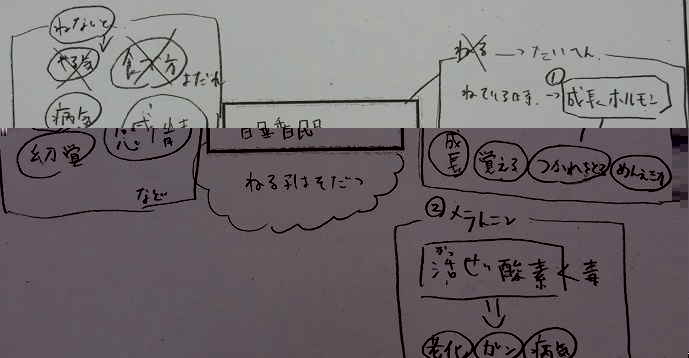 ねないと
やる気
食べ方
よだれ
病気
感情
幻覚
など
睡眠
ねる子はそだつ
ねる → たいへん
ねている時 → ① 成長ホルモン
成長 覚える つかれをとる めんえき
② メラトニン
活せい酸素 < 毒
老化 ガン 病気